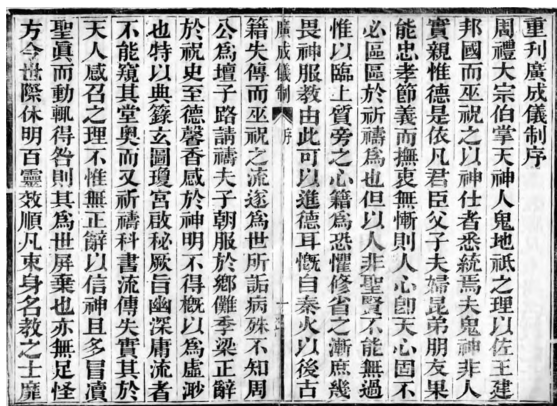 重刊廣成儀制序
周禮大宗伯掌天神人鬼地祇之理以佐王建
邦國而巫祝之以神仕者悉統焉夫鬼神非人
實親惟德是依凡君臣父子夫婦昆弟朋友果
能忠孝節義而撫衷無慚則人心卽天心固不
必區區於祈禱爲也但以人非聖賢不能無過
惟以臨上質旁之心籍爲恐懼修省之漸庶幾
畏神服教由此可以進德耳慨自秦火以後古
廣成儀制
序
一
籍失傳而巫祝之流遂爲世所詬病殊不知周
公爲壇子路請禱夫子朝服於鄉儺季梁正辭
於祝史至德馨香感於神明不得槪以爲虛渺
也特以典籙玄圖瓊宮啟秘厥旨幽深庸流者
不能窺其堂奧而又祈禱科書流傳失實其於
天人感召之理不惟無正辭以信神且多冒瀆
聖眞而動輒得咎則其爲世屏棄也亦無足怪
方今世際休明百靈效順凡束身名教之士靡